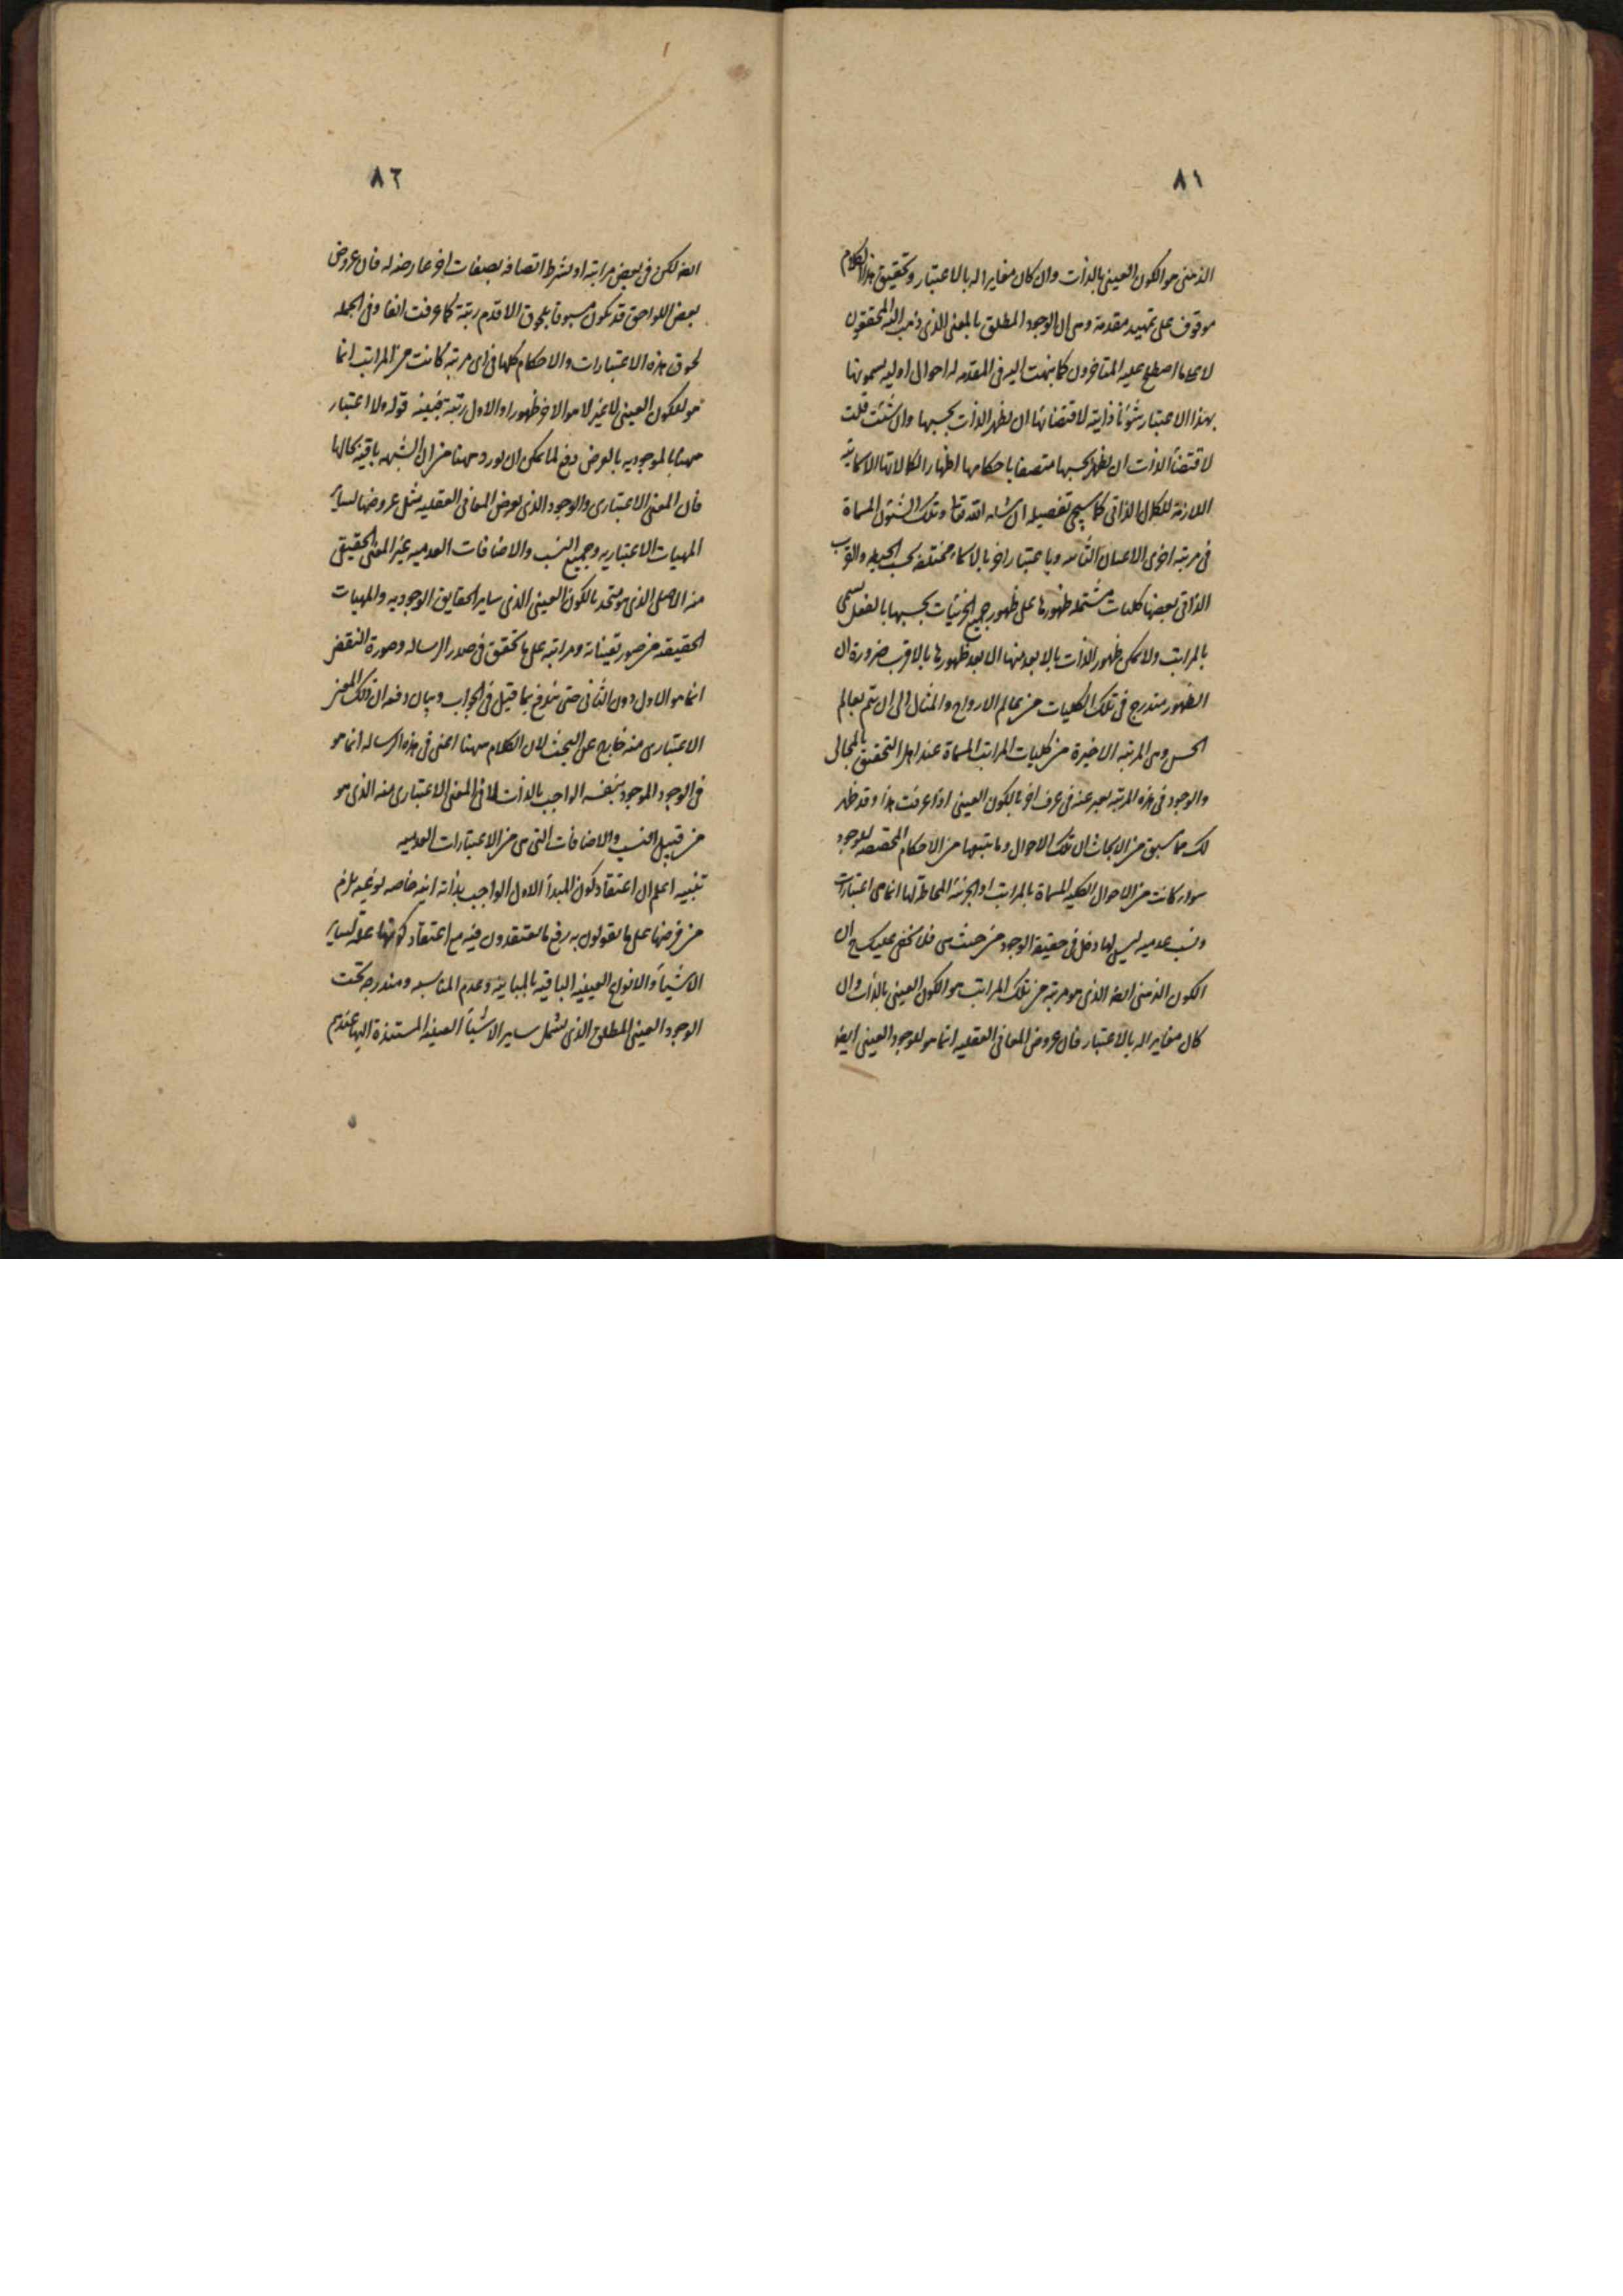 ٨١
الذهنى هو الكون العينى بالذات وان كان مغايرا له بالاعتبار وتحقيق هذا الكلام
موقوف على تمهيد مقدمة وهى ان الوجود المطلق بالمعنى الذى ذهب اليه المحققون
لا على ما اصطلح عليه المتاخرون كما نبهت اليه فى المقدمه له احوال اوليه يسمونها
بهذا الاعتبار شئونا ذاتية لاقتضائها ان يظهر الذات بحسبها وان شئت قلت
لاقتضاء الذات ان يظهر بحسبها متصفا باحكامها اظهارا لكمالاتها الاسمائية
اللازمة للكمال الذاتى كما سيجى تفصيله ان شاء الله تعالى وتلك الشئون المسماة
فى مرتبه اخرى الاعيان الثابته وباعتبار اخر بالاسماء مختلفه بحسب الحيطه والقرب
الذاتى بعضها كليات مشتمله ظهورها على ظهور جميع الجزئيات بحسبها بالفعل يسمى
بالمراتب ولا يمكن ظهور الذات بالابعد منها الا بعد ظهورها بالاقرب ضرورة ان
الظهور متدرج فى تلك الكليات من عالم الارواح والمثال الى ان يتم بعالم
الحس وهى المرتبه الاخيرة من كليات المراتب المسماة عند اهل التحقيق بالمجالى
والوجود فى هذه المرتبه يعبر عنه فى عرف اخر بالكون العينى اذا عرفت هذا وقد ظهر
لك مما سبق من الابحاث ان تلك الاحوال وما يتبعها من الاحكام المختصه للوجود
سواء كانت من الاحوال الكليه المسماة بالمراتب او الجزئية المحاطة لها انما هى اعتبارات
ونسب عدميه ليس لها دخل فى حقيقة الوجود من حيث هى فلا يخفى عليك ح ان
الكون الذهنى ايضا الذى هو مرتبه من تلك المراتب هو الكون العينى بالذات وان
كان مغايرا له بالاعتبار فان عروض المعانى العقليه انما هو للوجود العينى ايضا
٨٢
ايضا لكن فى بعض مراتبه او بشرط اتصافه بصفات اخر عارضه له فان عروض
بعض اللواحق قد يكون مسبوقا بلحوق الاقدم رتبة كما عرفت انفا وفى الجمله
لحوق هذه الاعتبارات والاحكام كلها فى اى مرتبه كانت من المراتب انما
هو للكون العينى لا غير لا هو الاخر ظهورا والاول رتبة بعينه قوله ولا اعتبار
ههنا بالموجوديه بالعرض دفع لما يمكن ان يورد ههنا من ان الشبهه باقيه بحالها
فان المعنى الاعتبارى والوجود الذى يعرض المعانى العقليه مثل عروضها لساير
المهيات الاعتباريه وجميع النسب والاضافات العدميه غير المعنى الحقيقى
منه الاصلى الذى هو متحد بالكون العينى الذى ساير الحقايق الوجوديه والمهيات
الحقيقه من صور تعيناته ومراتبه على ما تحقق فى صدر الرساله وصورة النقض
انما هو الاول دون الثانى حتى يندفع بما قيل فى الجواب وبيان دفعه ان ذلك المعنى
الاعتبارى منه خارج عن البحث لان الكلام ههنا اعنى فى هذه الرساله انما هو
فى الوجود الموجود بنفسه الواجب بالذات لا فى المعنى الاعتبارى منه الذى هو
من قبيل النسب والاضافات التى هى من الاعتبارات العدميه
تنبيه اعلم ان اعتقاد كون المبدأ الاول الواجب بذاته انيه خاصه نوعيه يلزم
من فرضها على ما يقولون به رفع ما يعتقدون فيه مع اعتقاد كونها علة لساير
الاشيآء والانواع العينيه الباقيه بالمباينه وعدم المناسبه ومندرجه تحت
الوجود العينى المطلق الذى يشمل ساير الاشيآء العينيه المستندة اليها عندهم